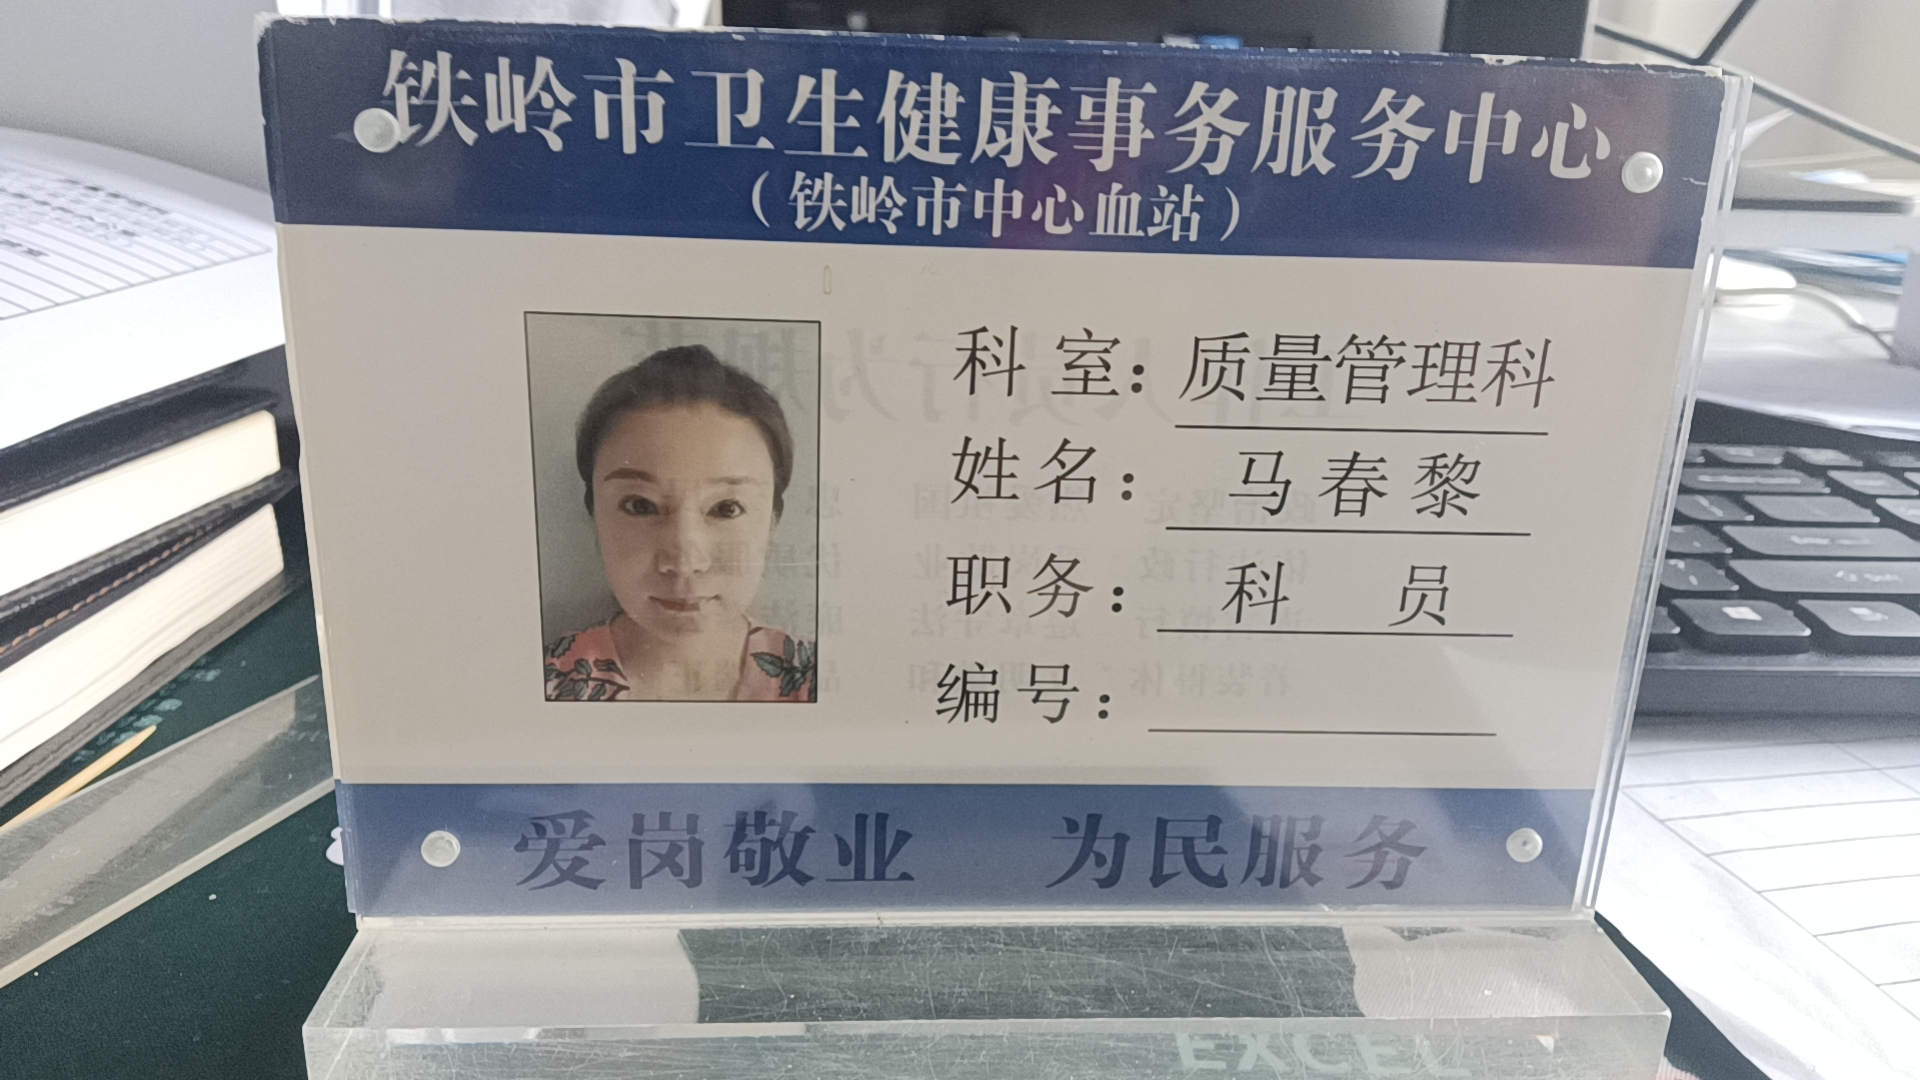 铁岭市卫生健康事务服务中心
（铁岭市中心血站）
科室：质量管理科
姓名：马春黎
职务：科 员
编号：
爱岗敬业 为民服务
EXCEL